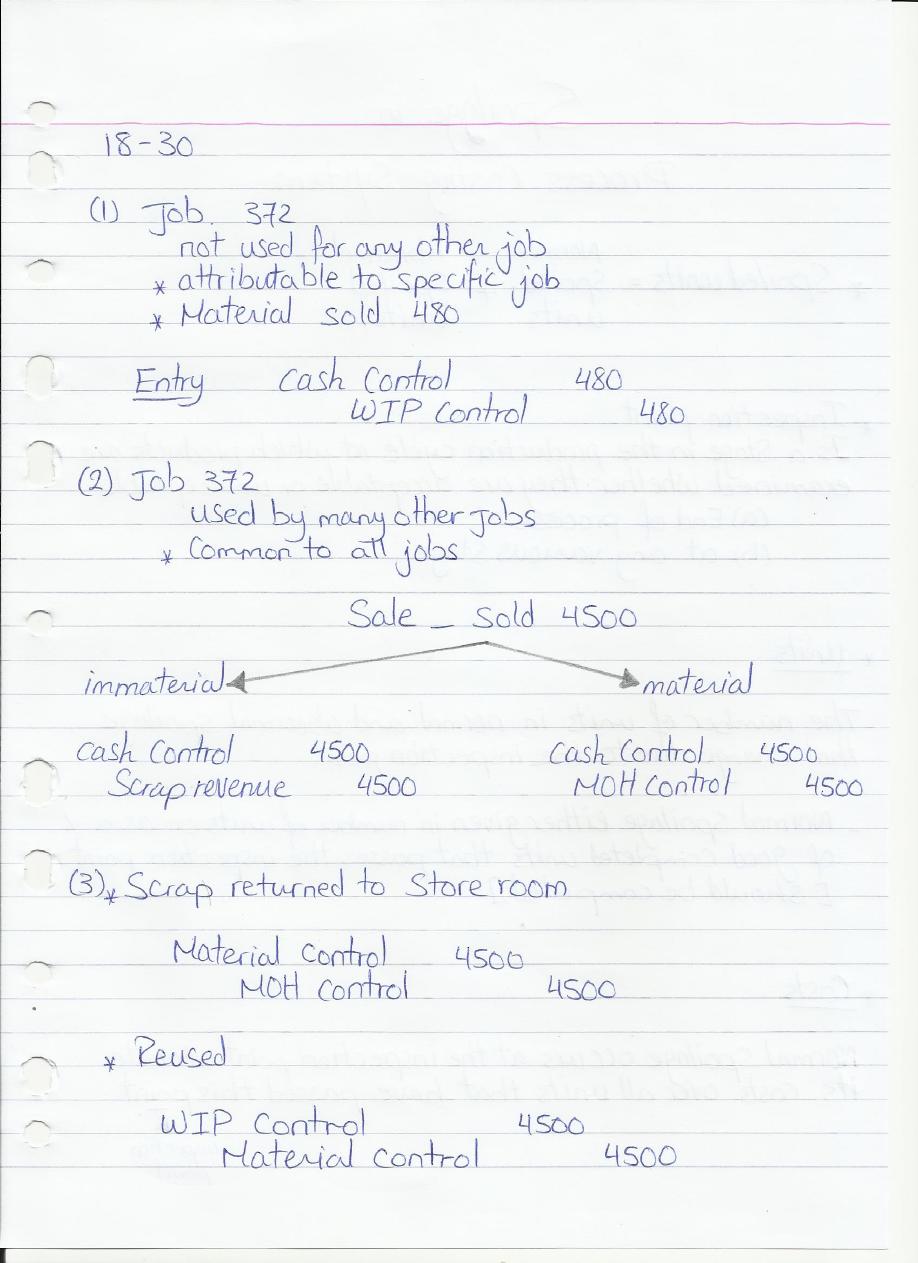 18-30
(1) Job. 372
not used for any other job
* attributable to specific job
* Material sold 480
Entry Cash Control 480
WIP Control 480
(2) Job 372
used by many other Jobs
* Common to all jobs
Sale - sold 4500
immaterial material
Cash Control 4500 Cash Control 4500
Scrap revenue 4500 MOH Control 4500
(3)* Scrap returned to Store room
Material Control 4500
MOH Control 4500
* Reused
WIP Control 4500
Material control 4500